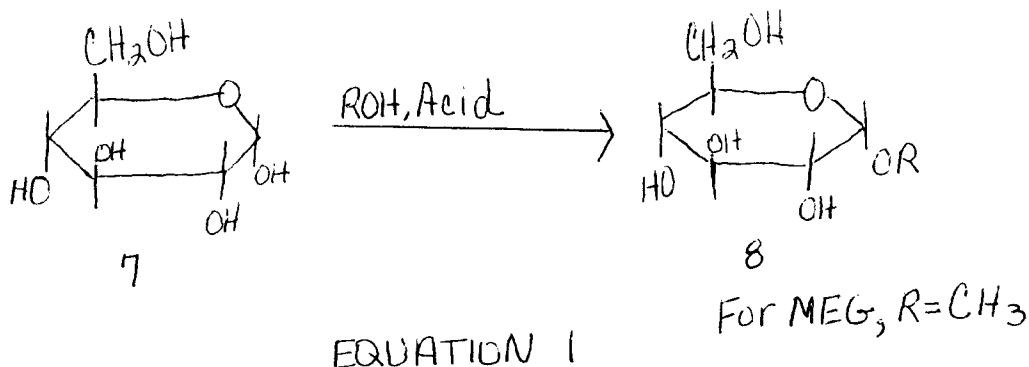 CH2OH
O
OH
HO
OH
OH
7
ROH, Acid
CH2OH
O
OH
HO
OH
OR
8
For MEG, R=CH3
EQUATION 1